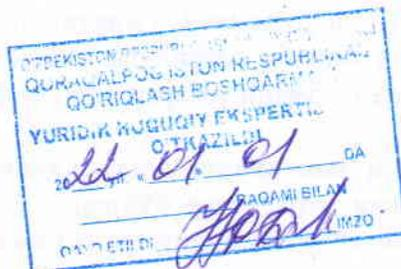 O'ZBEKISTON
QORAQALPOG'ISTON RESPUBLIKASI
QO'RIQLASH BOSHQARMA
YURIDIK HUQUQIY EKSPERTIZ
O'TKAZILDI
2022 yil « 01 » 01 DA
RAQAMI BILAN
QAYD ETILDI IMZO